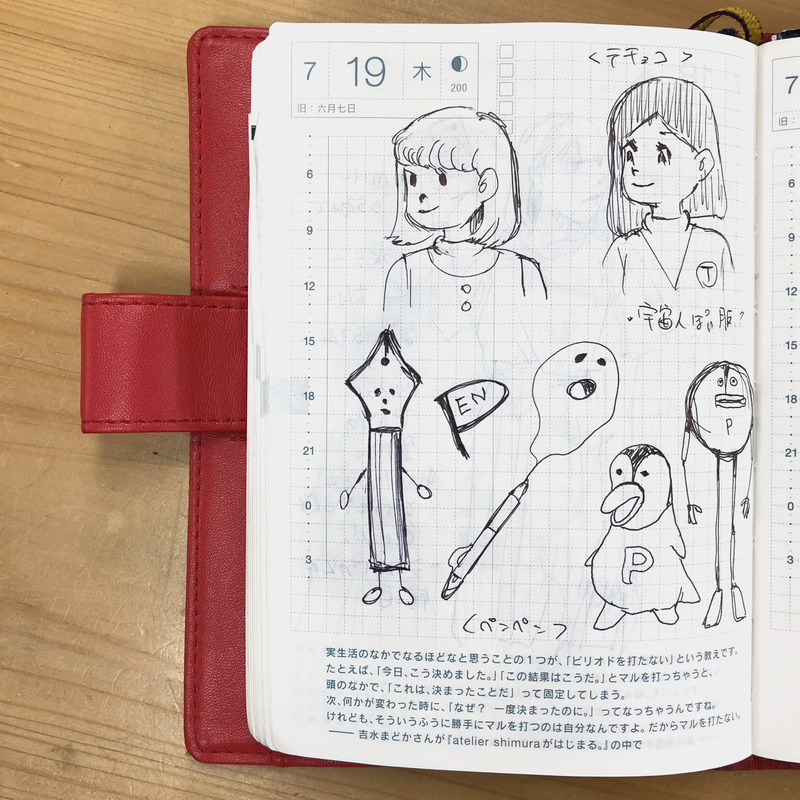 7 19 木
200
旧：六月七日
<テチョコ>
T
・宇宙人ぽい服？
6
9
12
15
18
21
0
3
EN
P
P
<ペンペン>
実生活のなかでなるほどなと思うことの1つが、「ピリオドを打たない」という教えです。
たとえば、「今日、こう決めました。」「この結果はこうだ。」とマルを打っちゃうと、
頭のなかで、「これは、決まったことだ」って固定してしまう。
次、何かが変わった時に、「なぜ？　一度決まったのに。」ってなっちゃうんですね。
けれども、そういうふうに勝手にマルを打つのは自分なんですよ。だからマルを打たない。
——吉水まどかさんが『atelier shimuraがはじまる。』の中で
7
旧：
6
9
12
15
18
21
0
3